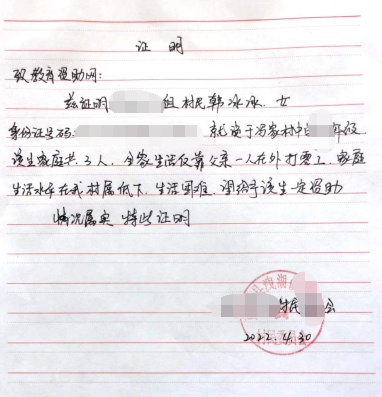 证明
致教育援助网:
兹证明 组村民韩冰冰,女
身份证号码: 就读于冯家村中 年级
该生家庭共3人,全家生活仅靠父亲一人在外打零工,家庭
生活水平在我村属低下,生活困难,望给予该生一定援助
情况属实 特此证明
村民 会
2022.4.30
村民委员会